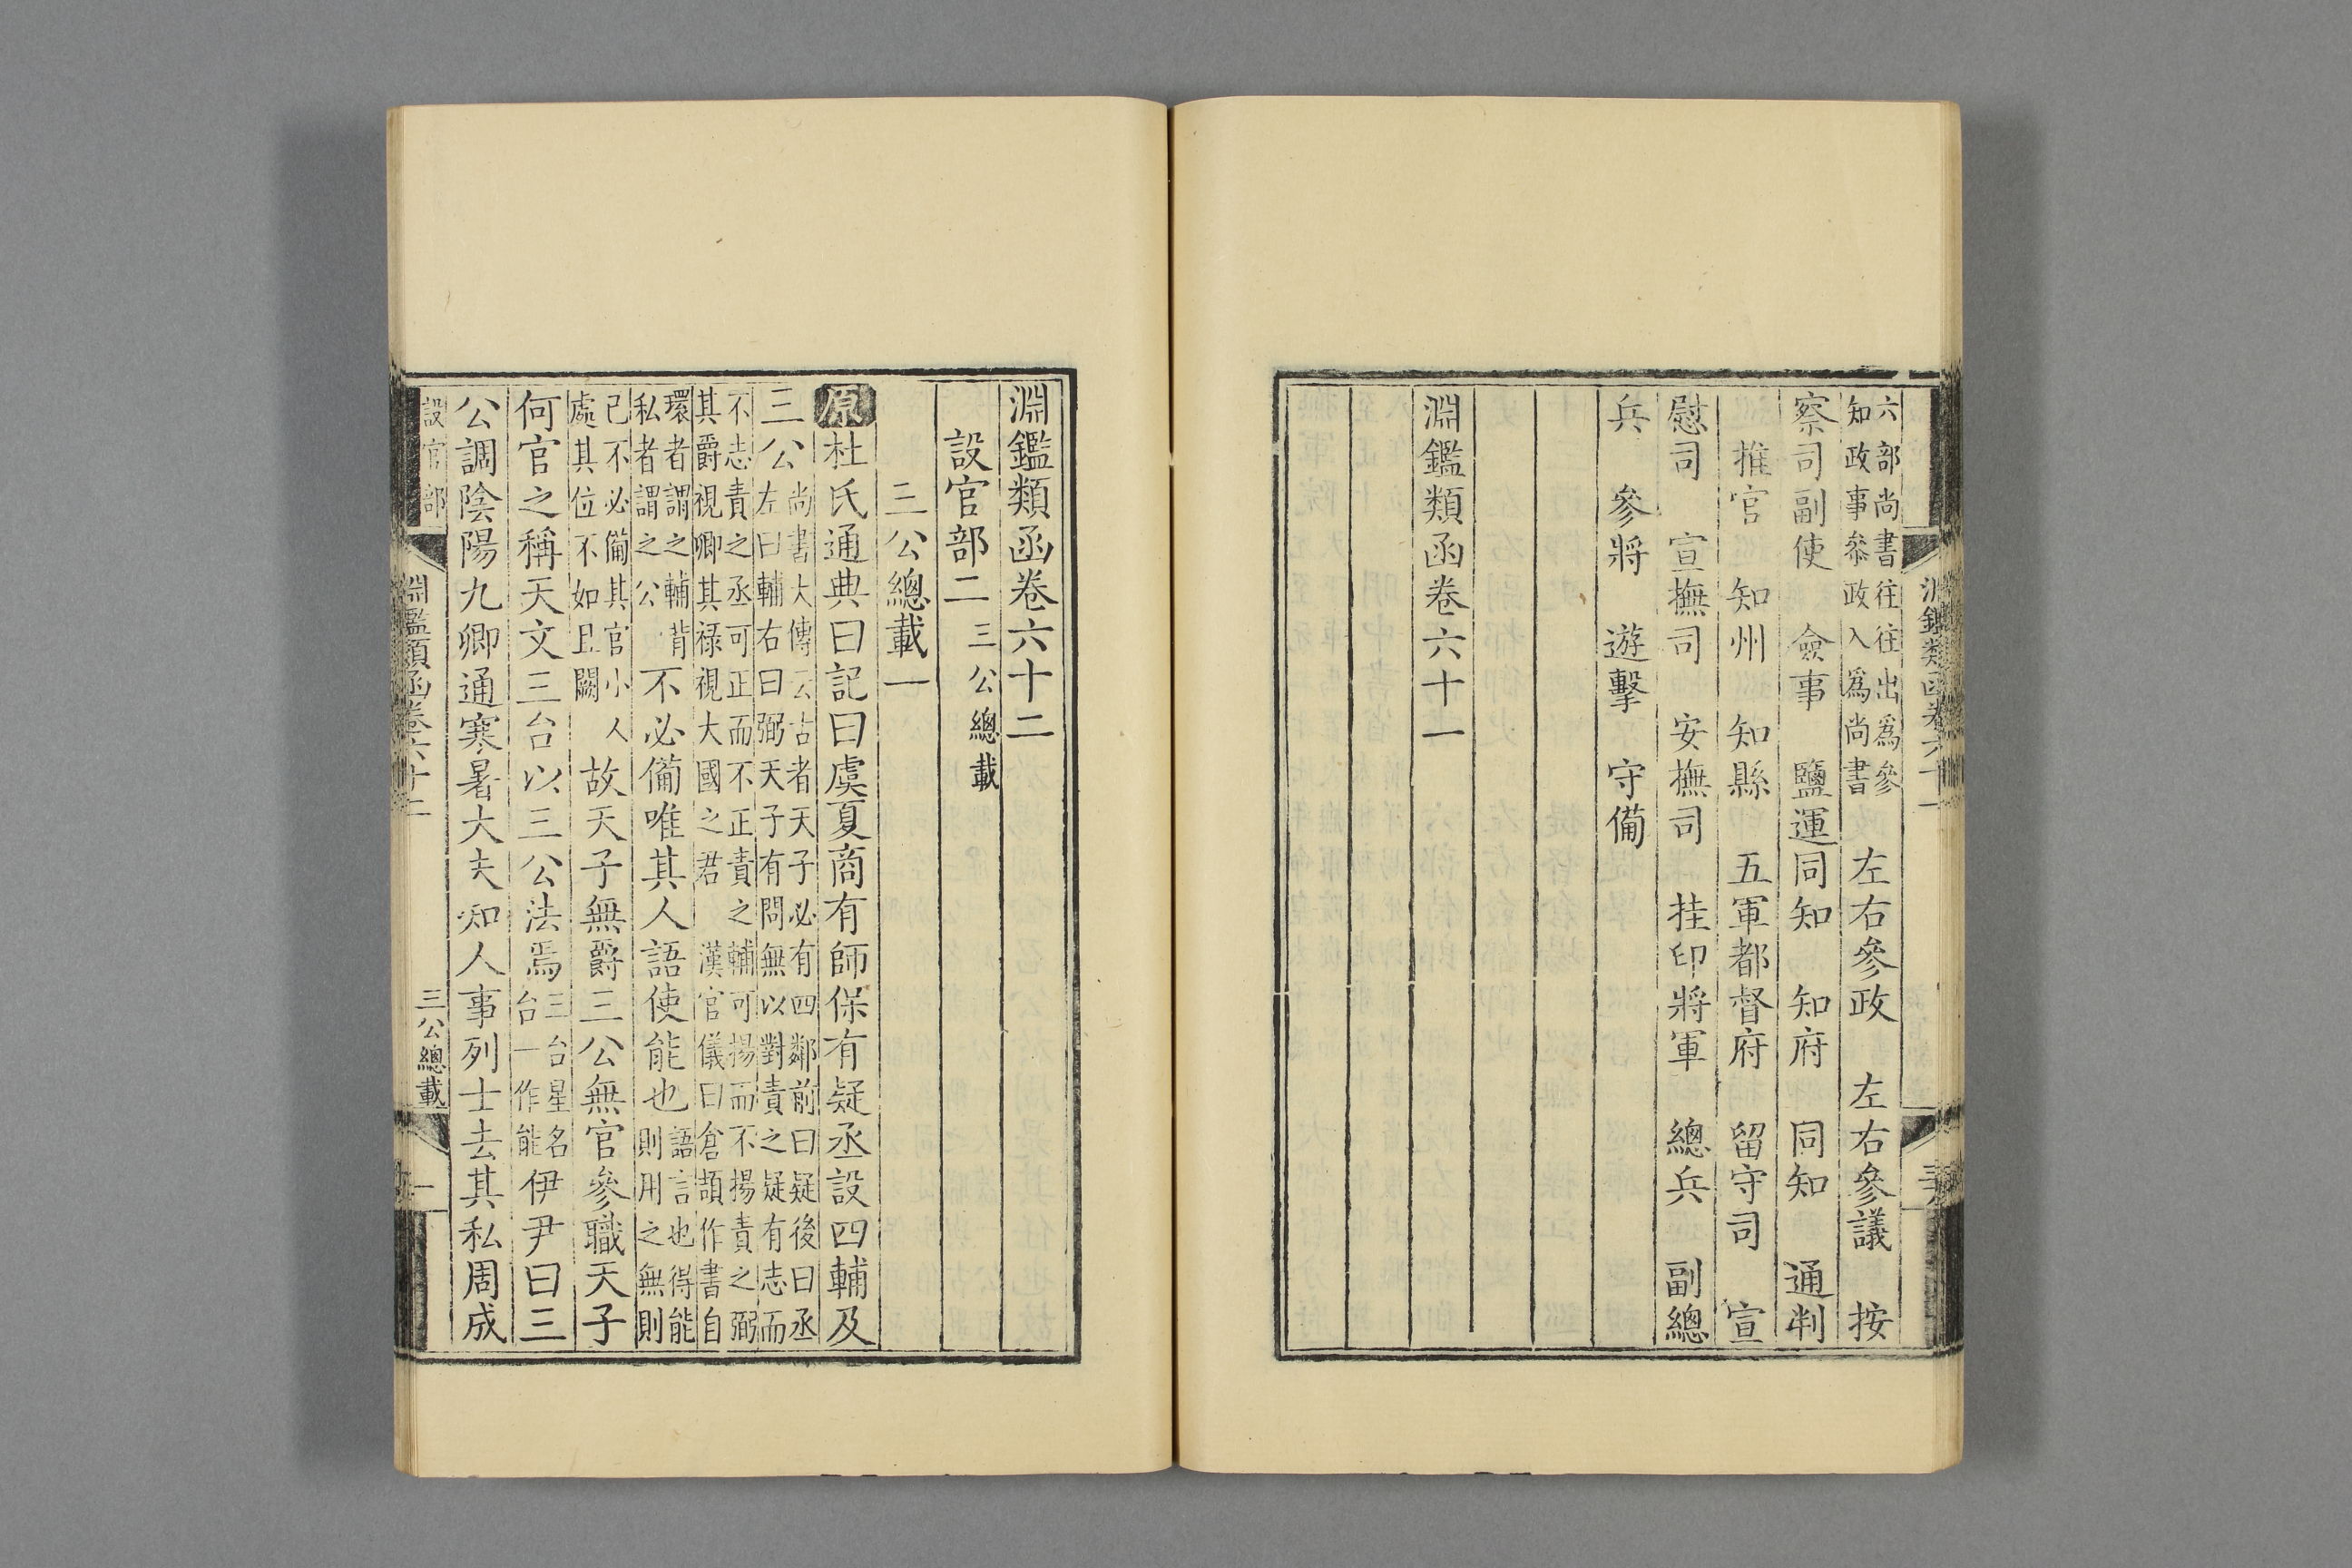 淵鑑類函卷六十一
六部尚書往往出爲參
知政事叅政入爲尚書
左右參政 左右參議 按
察司副使 僉事 鹽運同知 知府 同知 通判
推官 知州 知縣 五軍都督府 留守司 宣
慰司 宣撫司 安撫司 挂印將軍 總兵 副總
兵 參將 遊擊 守備
淵鑑類函卷六十一
淵鑑類函卷六十二
設官部二 三公總載
三公總載一
原 杜氏通典曰記曰虞夏商有師保有疑丞設四輔及
三公
尚書大傳云古者天子必有四鄰前曰疑後曰丞
左曰輔右曰弼天子有問無以對責之疑有志而
不志責之丞可正而不正責之輔可揚而不揚責之弼
其爵視卿其祿視大國之君 漢官儀曰倉頡作書自
環者謂之輔背
私者謂之公
不必備唯其人語使能也
語言也得能
則用之無則
已不必備其官小人
處其位不如且闕
故天子無爵三公無官參職天子
何官之稱天文三台以三公法焉
三台星名
台一作能
伊尹曰三
公調陰陽九卿通寒暑大夫知人事列士去其私周成
設官部 淵鑑類函卷六十二 三公總載 一